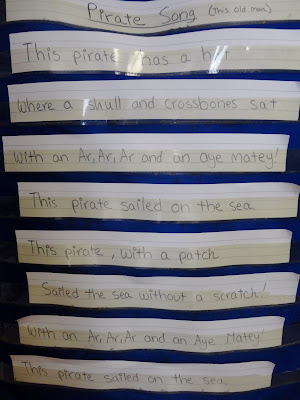 Pirate Song (This old man)
This pirate has a hat
Where a skull and crossbones sat
With an Ar, Ar, Ar and an aye matey!
This pirate sailed on the sea
This pirate, with a patch
Sailed the sea without a scratch!
With an Ar, Ar, Ar and an Aye Matey!
This pirate sailed on the sea.